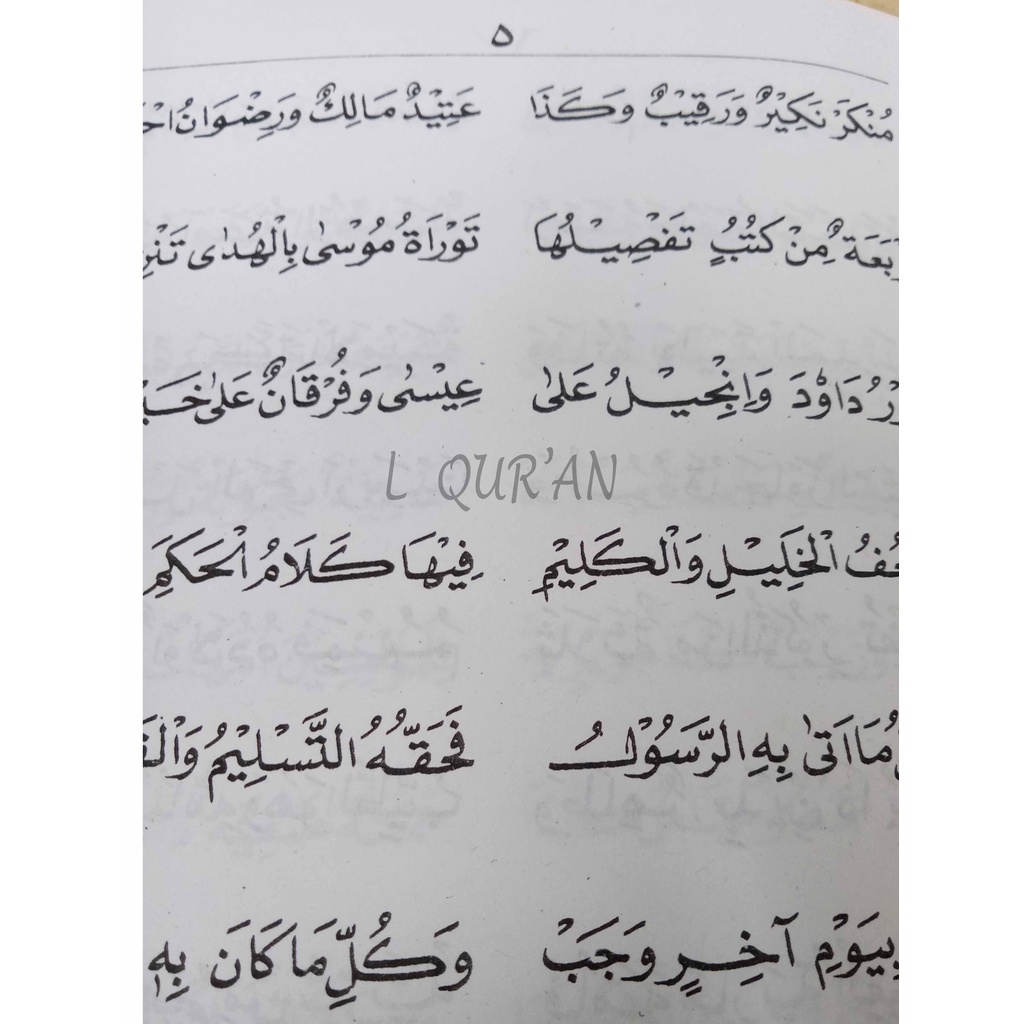 ٥
مُنْكَرْ نَكِيْرٌ وَرَقِيْبٌ وَكَذَا عَتِيْدٌ مَالِكٌ وَرِضْوَانُ
مِنْ كُتُبٍ تَفْصِيْلُهَا تَوْرَاةُ مُوْسٰى بِالْهُدٰى
دَاوُدَ وَاِنْجِيْلُ عَلٰى عِيْسٰى وَفُرْقَانٌ عَلٰى
L QUR'AN
الْخَلِيْلِ وَالْكَلِيْمِ فِيْهَا كَلَامُ الْحَكَمِ
مَا اَتٰى بِهِ الرَّسُوْلُ فَحَقُّهُ التَّسْلِيْمُ
بِيَوْمِ آخِرٍ وَجَبْ وَكُلِّ مَا كَانَ بِهِ